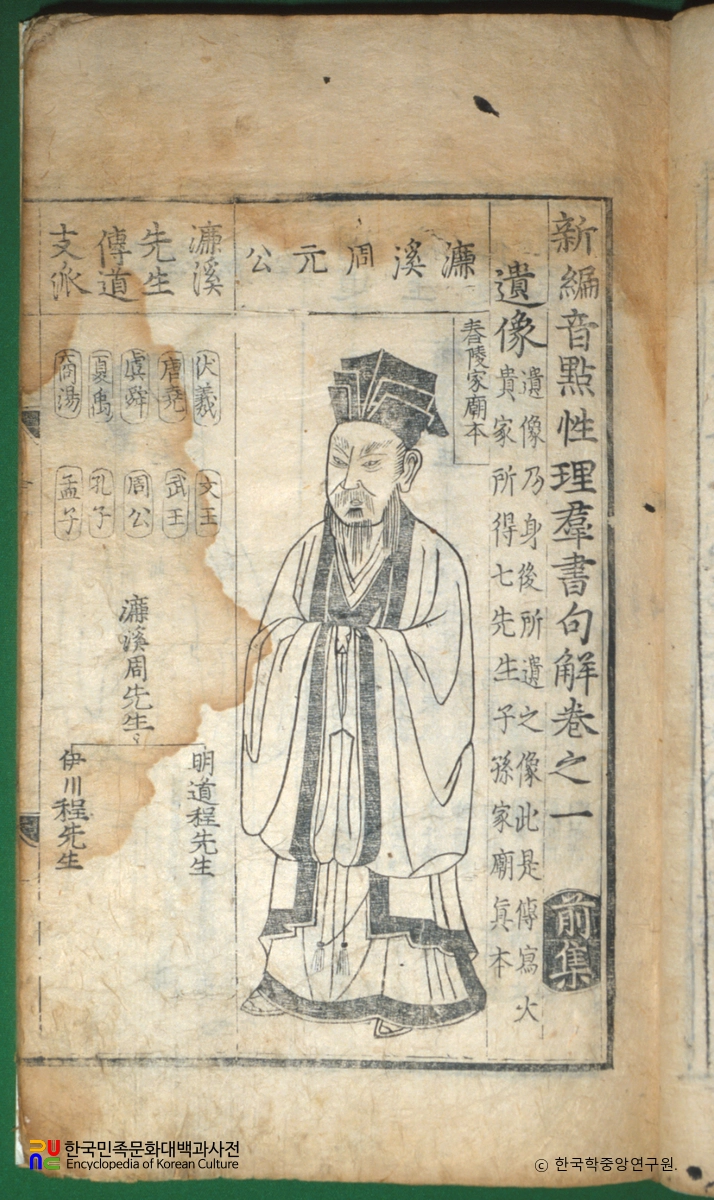 新編音點性理羣書句解卷之一 前集
遺像
遺像乃身後所遺之像此是傳寫火
貴家所得七先生子孫家廟眞本
濂溪周元公
春陵家廟本
濂溪
先生
傳道
支派
伏羲 唐堯 虞舜 夏禹 商湯
文王 武王 周公 孔子 孟子
濂溪周先生
明道程先生
伊川程先生
한국민족문화대백과사전
Encyclopedia of Korean Culture
© 한국학중앙연구원.